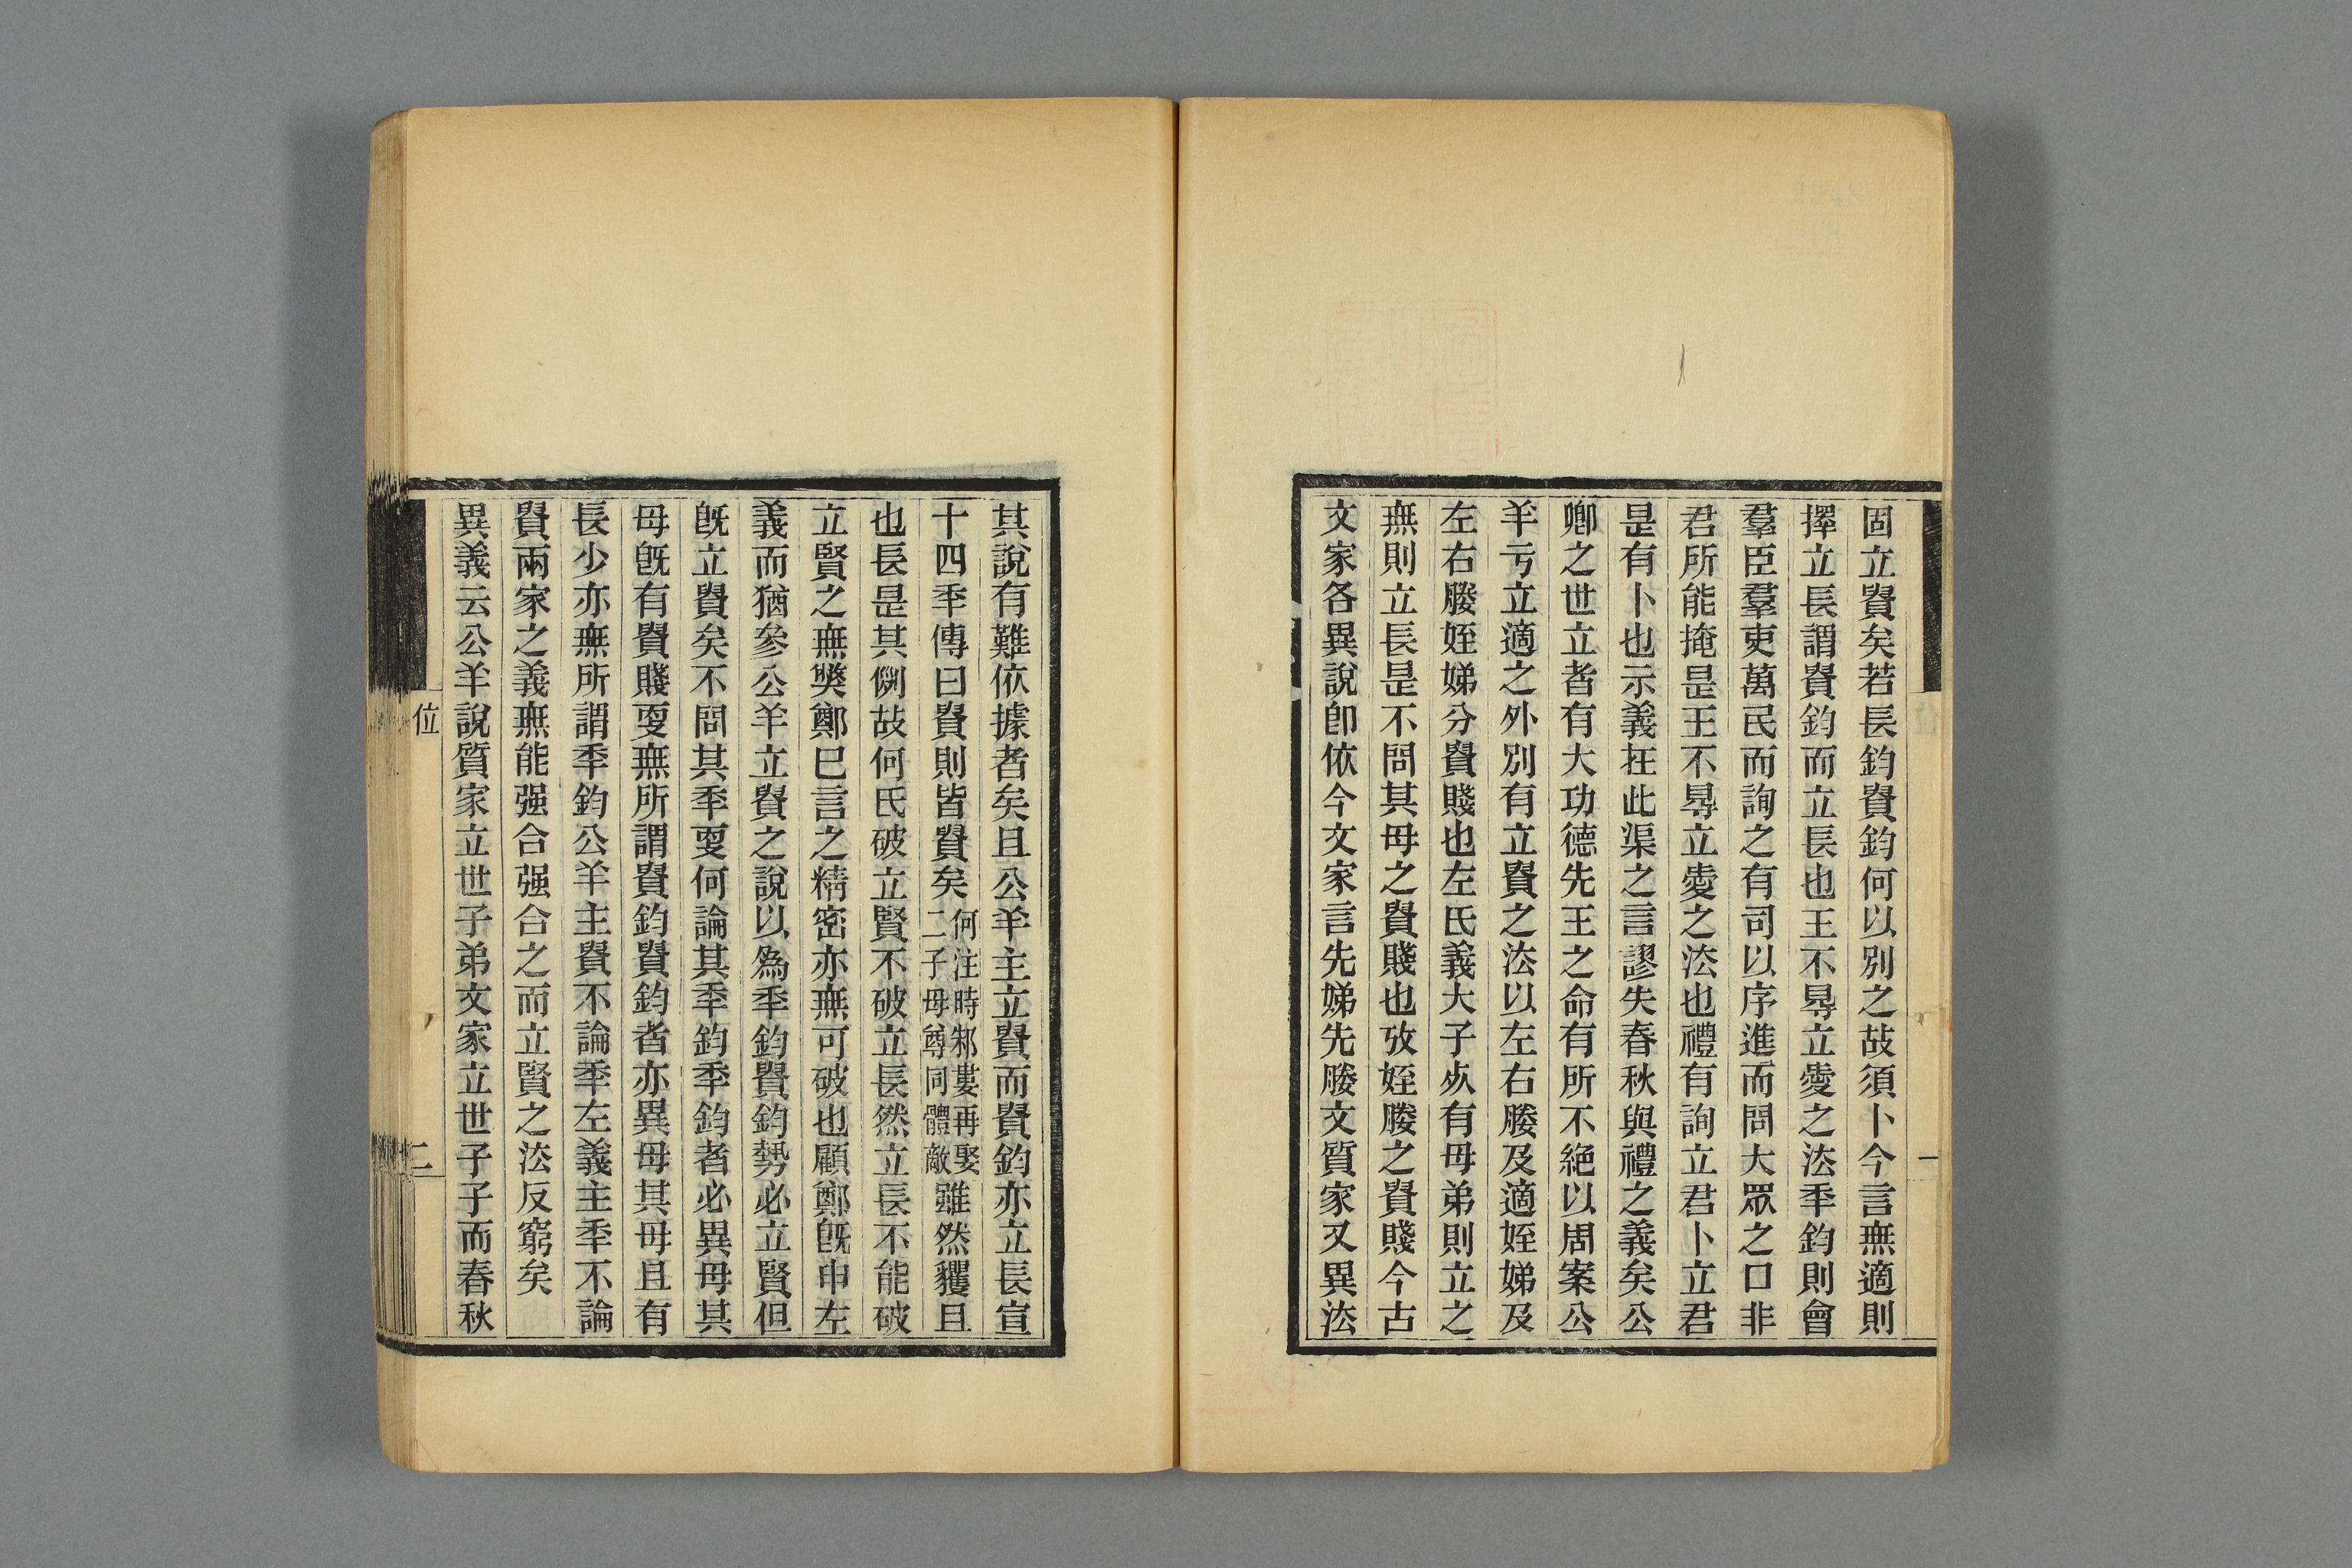 固立貴矣若長鈞貴鈞何以別之故須卜今言無適則
擇立長謂貴鈞而立長也王不㝵立愛之法秊鈞則會
羣臣羣吏萬民而詢之有司以序進而問大眾之口非
君所能掩是王不㝵立愛之法也禮有詢立君卜立君
是有卜也示義在此渠之言謬失春秋與禮之義矣公
卿之世立者有大功德先王之命有所不絕以周案公
羊亏立適之外別有立貴之法以左右媵及適姪娣及
左右媵姪娣分貴賤也左氏義大子死有母弟則立之
無則立長是不問其母之貴賤也攷姪媵之貴賤今古
文家各異說卽依今文家言先娣先媵文質家又異法
其說有難依據者矣且公羊主立貴而貴鈞亦立長宣
十四秊傳曰貴則皆貴矣何注時邾婁再娶二子母尊同體敵雖然貜且
也長是其例故何氏破立賢不破立長然立長不能破
立賢之無獘鄭巳言之精密亦無可破也顧鄭旣申左
義而猶參公羊立貴之說以為秊鈞貴鈞勢必立賢但
旣立貴矣不問其秊㪅何論其秊鈞秊鈞者必異母其
母旣有貴賤㪅無所謂貴鈞貴鈞者亦異母其母且有
長少亦無所謂秊鈞公羊主貴不論秊左義主秊不論
貴兩家之義無能强合强合之而立賢之法反窮矣
異義云公羊說質家立世子弟文家立世子子而春秋
位
二